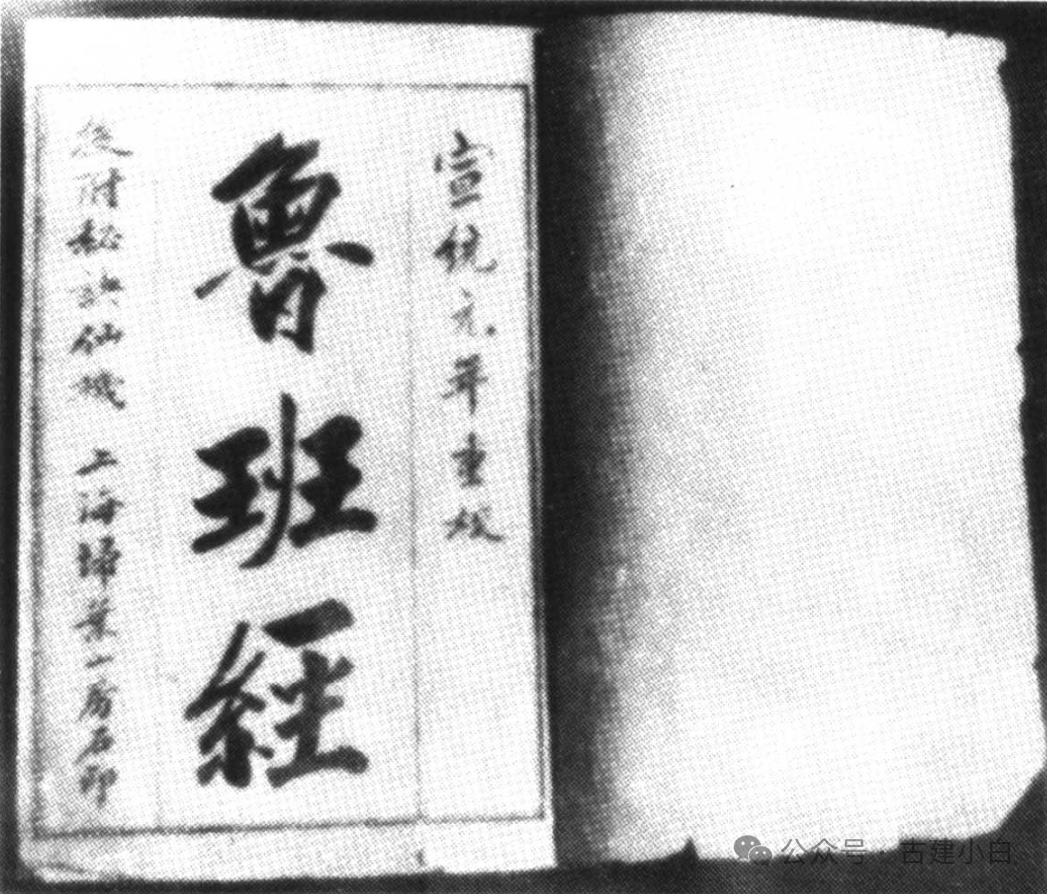 宣統元年重校
魯班經
後附秘訣仙機 上海掃葉山房石印
公众号 · 古建小白